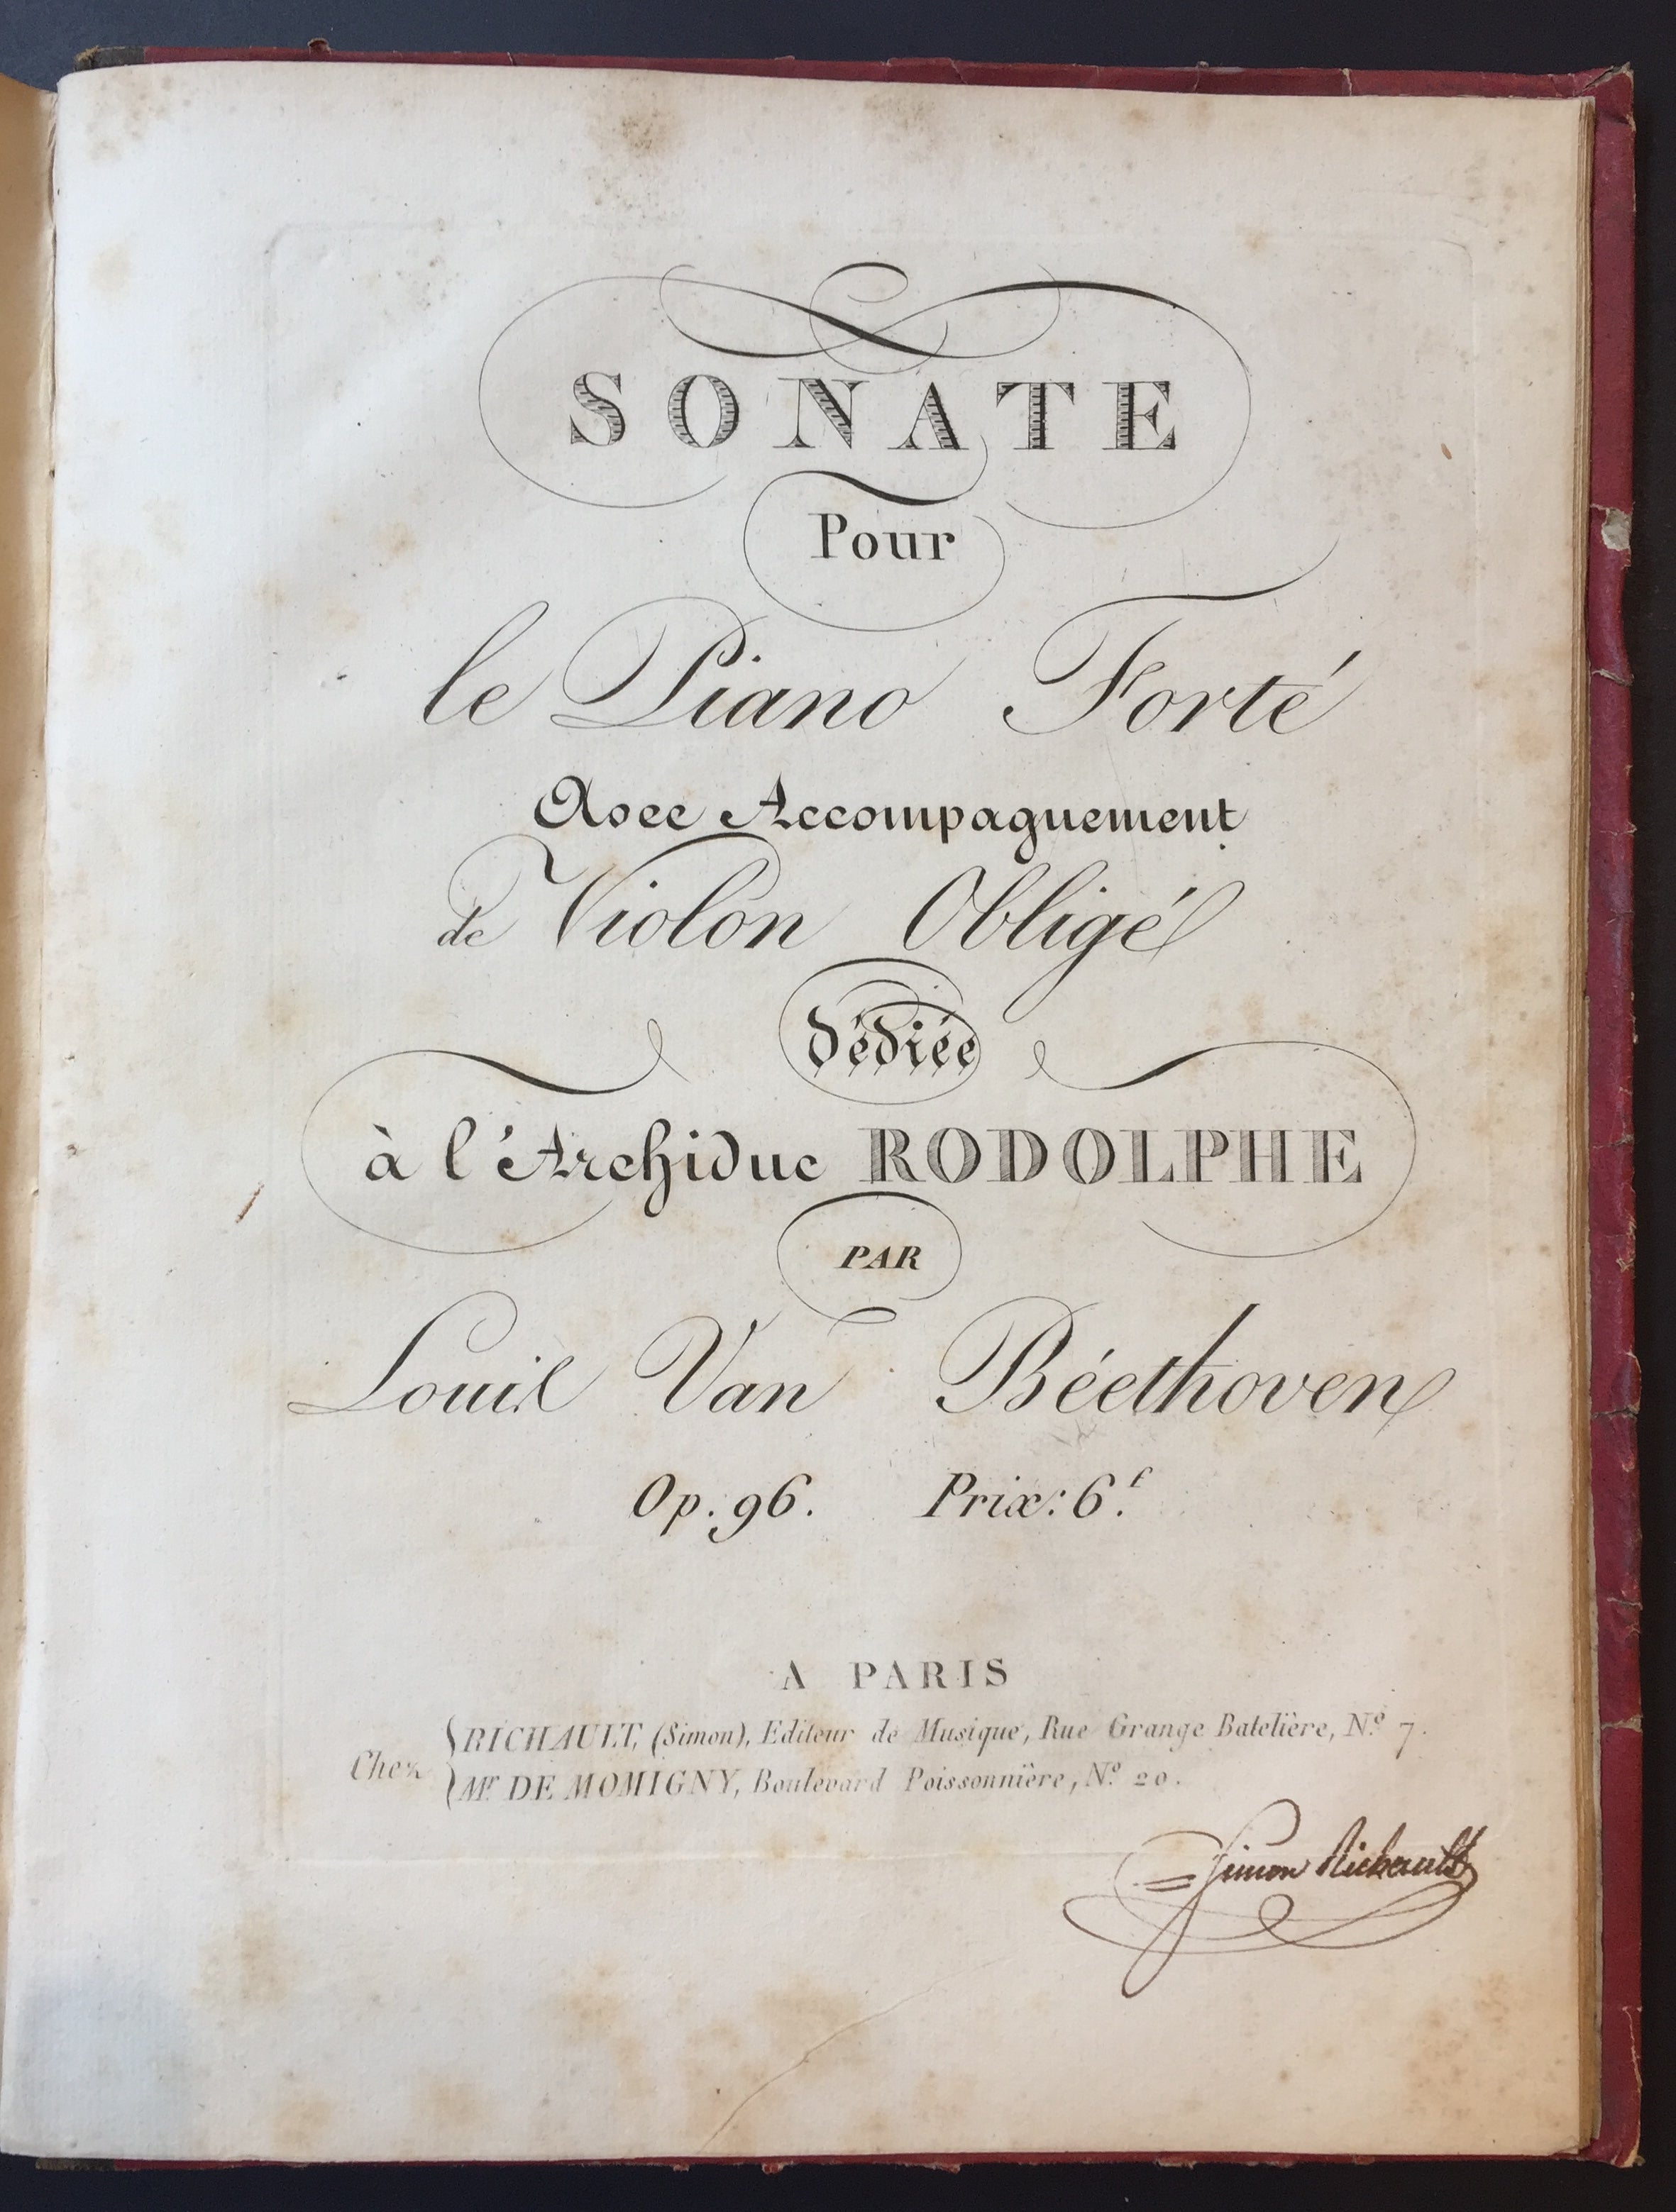 SONATE
Pour
le Piano Forté
Avec Accompagnement
de Violon Obligé
dédiée
à l'Archiduc RODOLPHE
PAR
Louis Van Béethoven
Op. 96. Prix: 6.f
A PARIS
Chez
RICHAULT, (Simon), Editeur de Musique, Rue Grange Batelière, N.º 7.
M.r DE MOMIGNY, Boulevard Poissonnière, N.º 20.
Simon Richault